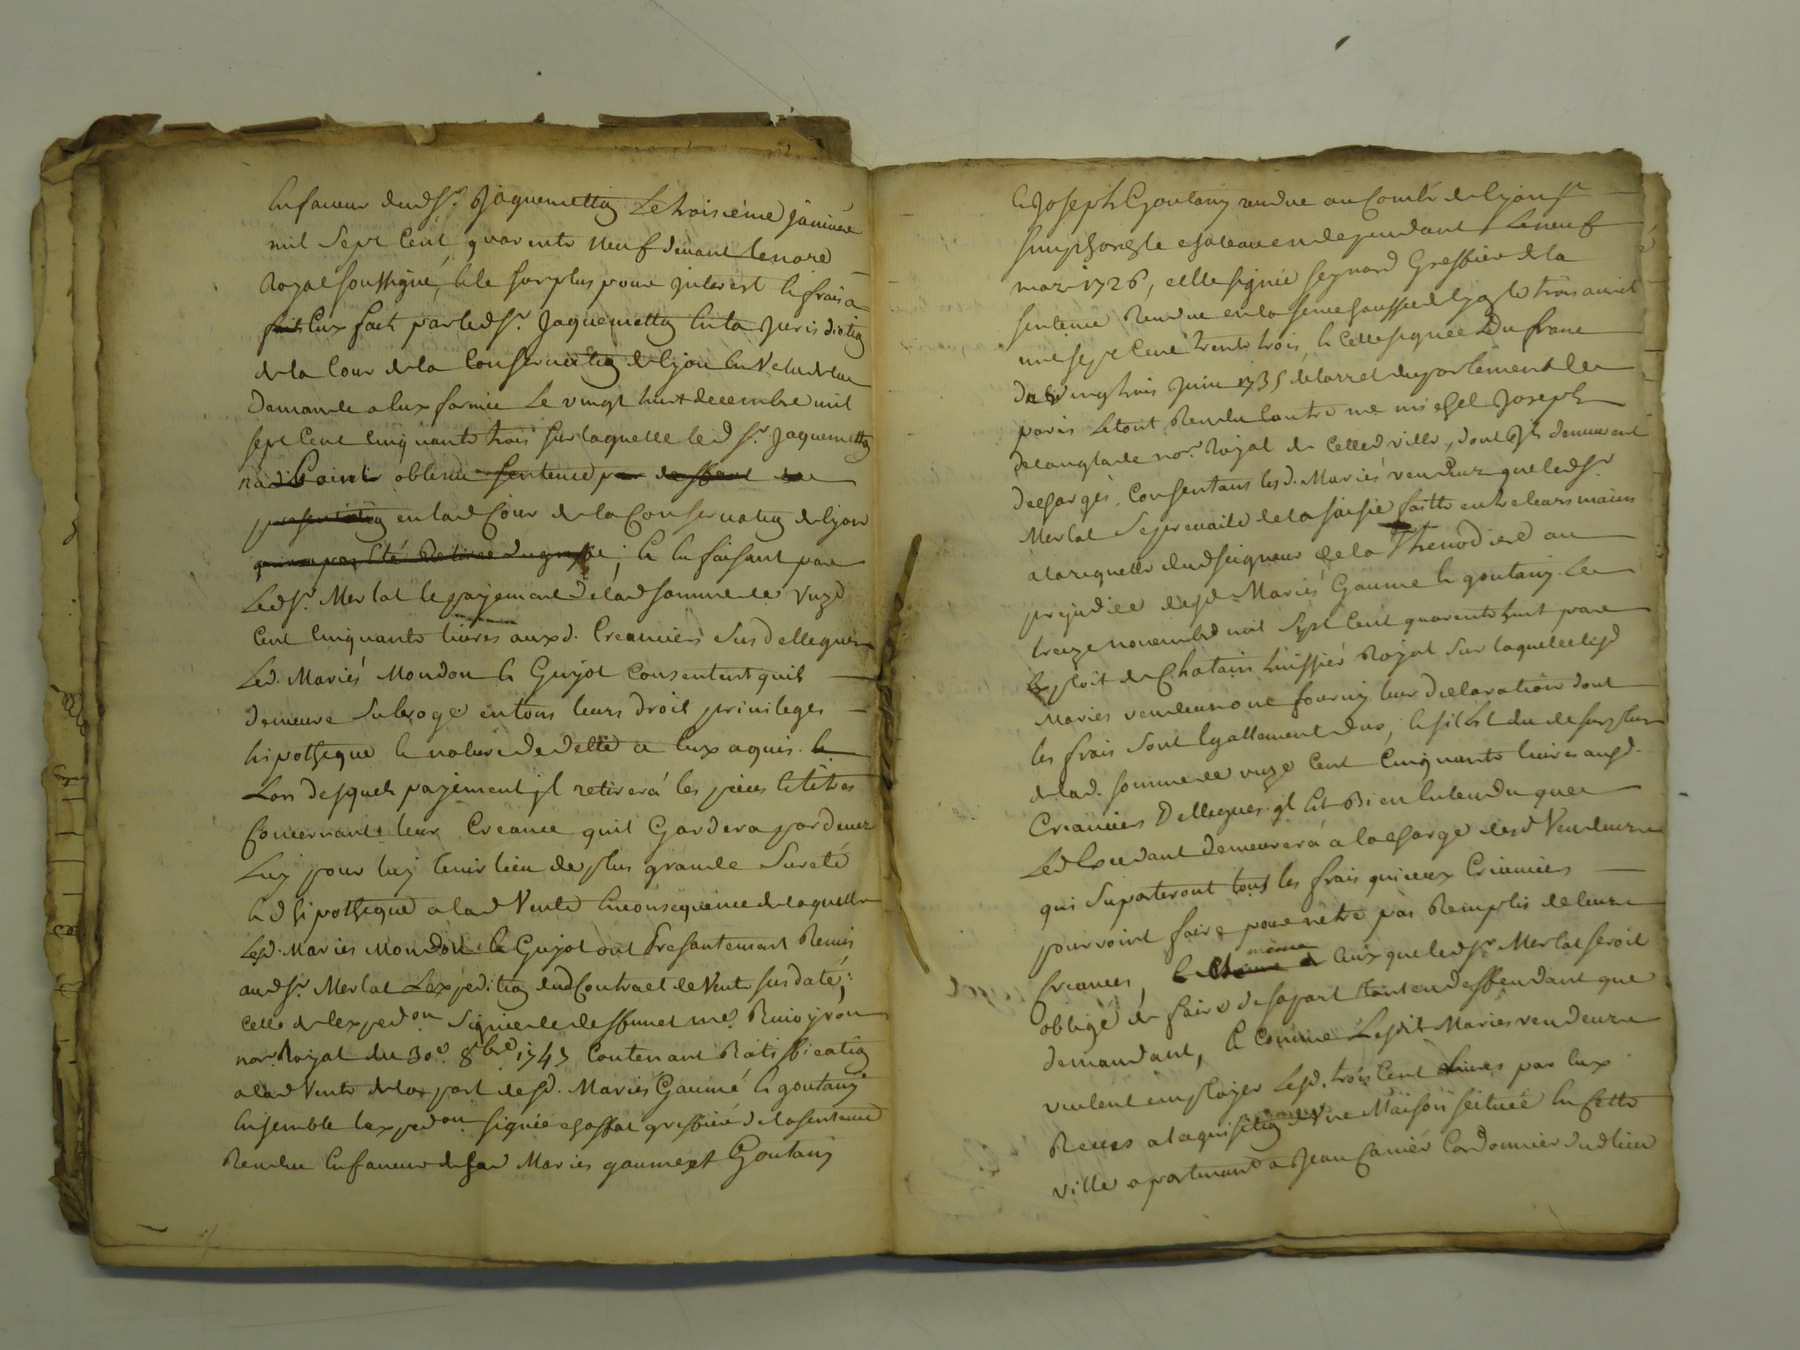 En faveur dud Sr. Jaquemetton Le troisieme janvier
mil sept Cent quarente Neuf devant le nore
Royal soussigné, et le surplus pour interest et frais a
eux fait par led Sr. Jaquemetton en la jurisdiction
de la Cour de la Conservation de Lyon en vertu de la
demande a eux formée Le vingt huit decembre mil
sept Cent Cinquante trois sur laquelle led Sr. Jaquemetton
n'a obtenu sentence par deffaut
presentation en lad Cour de la Conservation de Lyon
qui n'a pas été Retirée du greffe ; et en faisant par
Led Sr. Merlat le payement de lad somme de unze
Cent Cinquante livres auxd. Creanciers sus dellegués
Led. Mariés Moudon et Guyot Consentent quil
demeure Subrogé en tous leurs droit privileges
hipotheque et nature de dette a eux aquis. et
Lors desquels payement jl retirera les pieces et titres
Concernants leur Creance quil Gardera par devers
Luy pour luy tenir lieu de plus grande Sureté
et d'hipotheque a lad Vente en consequence de laquelle
Lesd. Mariés Moudon et Guyot ont Presantement Remis
aud Sr. Merlat L'expedition dud Contract de Vente sus daté,
celle de l'expedon signée de deffunct me. Buioyron
nore. Royal du 30e. 8bre 1747 Contenant Ratiffication
a lad Vente de la part desd. Mariés Gaumé et goutany
Ensemble l'expedon signée chassat greffier de la sentence
Rendue En faveur desd Mariés gaumé et Goutany
et Joseph Goutany rendue au Comté de Lyon St
simphorg le chateau en dependant Le neuf
mars 1726, celle signée seynard Greffier de la
sentence Rendue en la senechaussée de Lyon le trois avril
mil sept Cent trente trois, et celle signée Dufranc
du vingt trois juin 1735 de l'arret du parlement de
paris Le tout Rendu Contre me michel Joseph
delanglade nore. Royal de Cette d ville, dont jls demeurent
dechargés, Consentans lesd. Mariés vendeurs que led Sr.
Merlat Se prevaille de la saisie faitte entre leurs mains
a la requette dud seigneur de la Thenodiere au
prejudice desd. Mariés Gaume et goutany. Le
treize novembre mil Sept Cent quarente huit par
Exploit de Chatain huissier Royal sur laquelle lesd
Mariés vendeurs ont fourny leur declaration dont
les frais Sont Egallement dus, et s'il Est du de surplus
de lad. somme de unze Cent Cinquante livres auxd.
Creanciers Dellegués jl Est Bien Entendu que
Led Excedant demeurera a la charge desd Vendeurs
qui Suporteront tous les frais qui ceux Creanciers
pourroint faire pour n'etre pas Remplis de leurs
creances, et même Ceux que led Sr. Merlat seroit
obligé de faire de sa part tant en deffendant que
demandant, Et Comme Lesdit Mariés vendeurs
veulent employer Lesd. trois Cent livres par Eux
Receus a l'aquisition d'une Maison scituée En Cette
ville apartenant a Jean Canier Cordonnier dud lieu